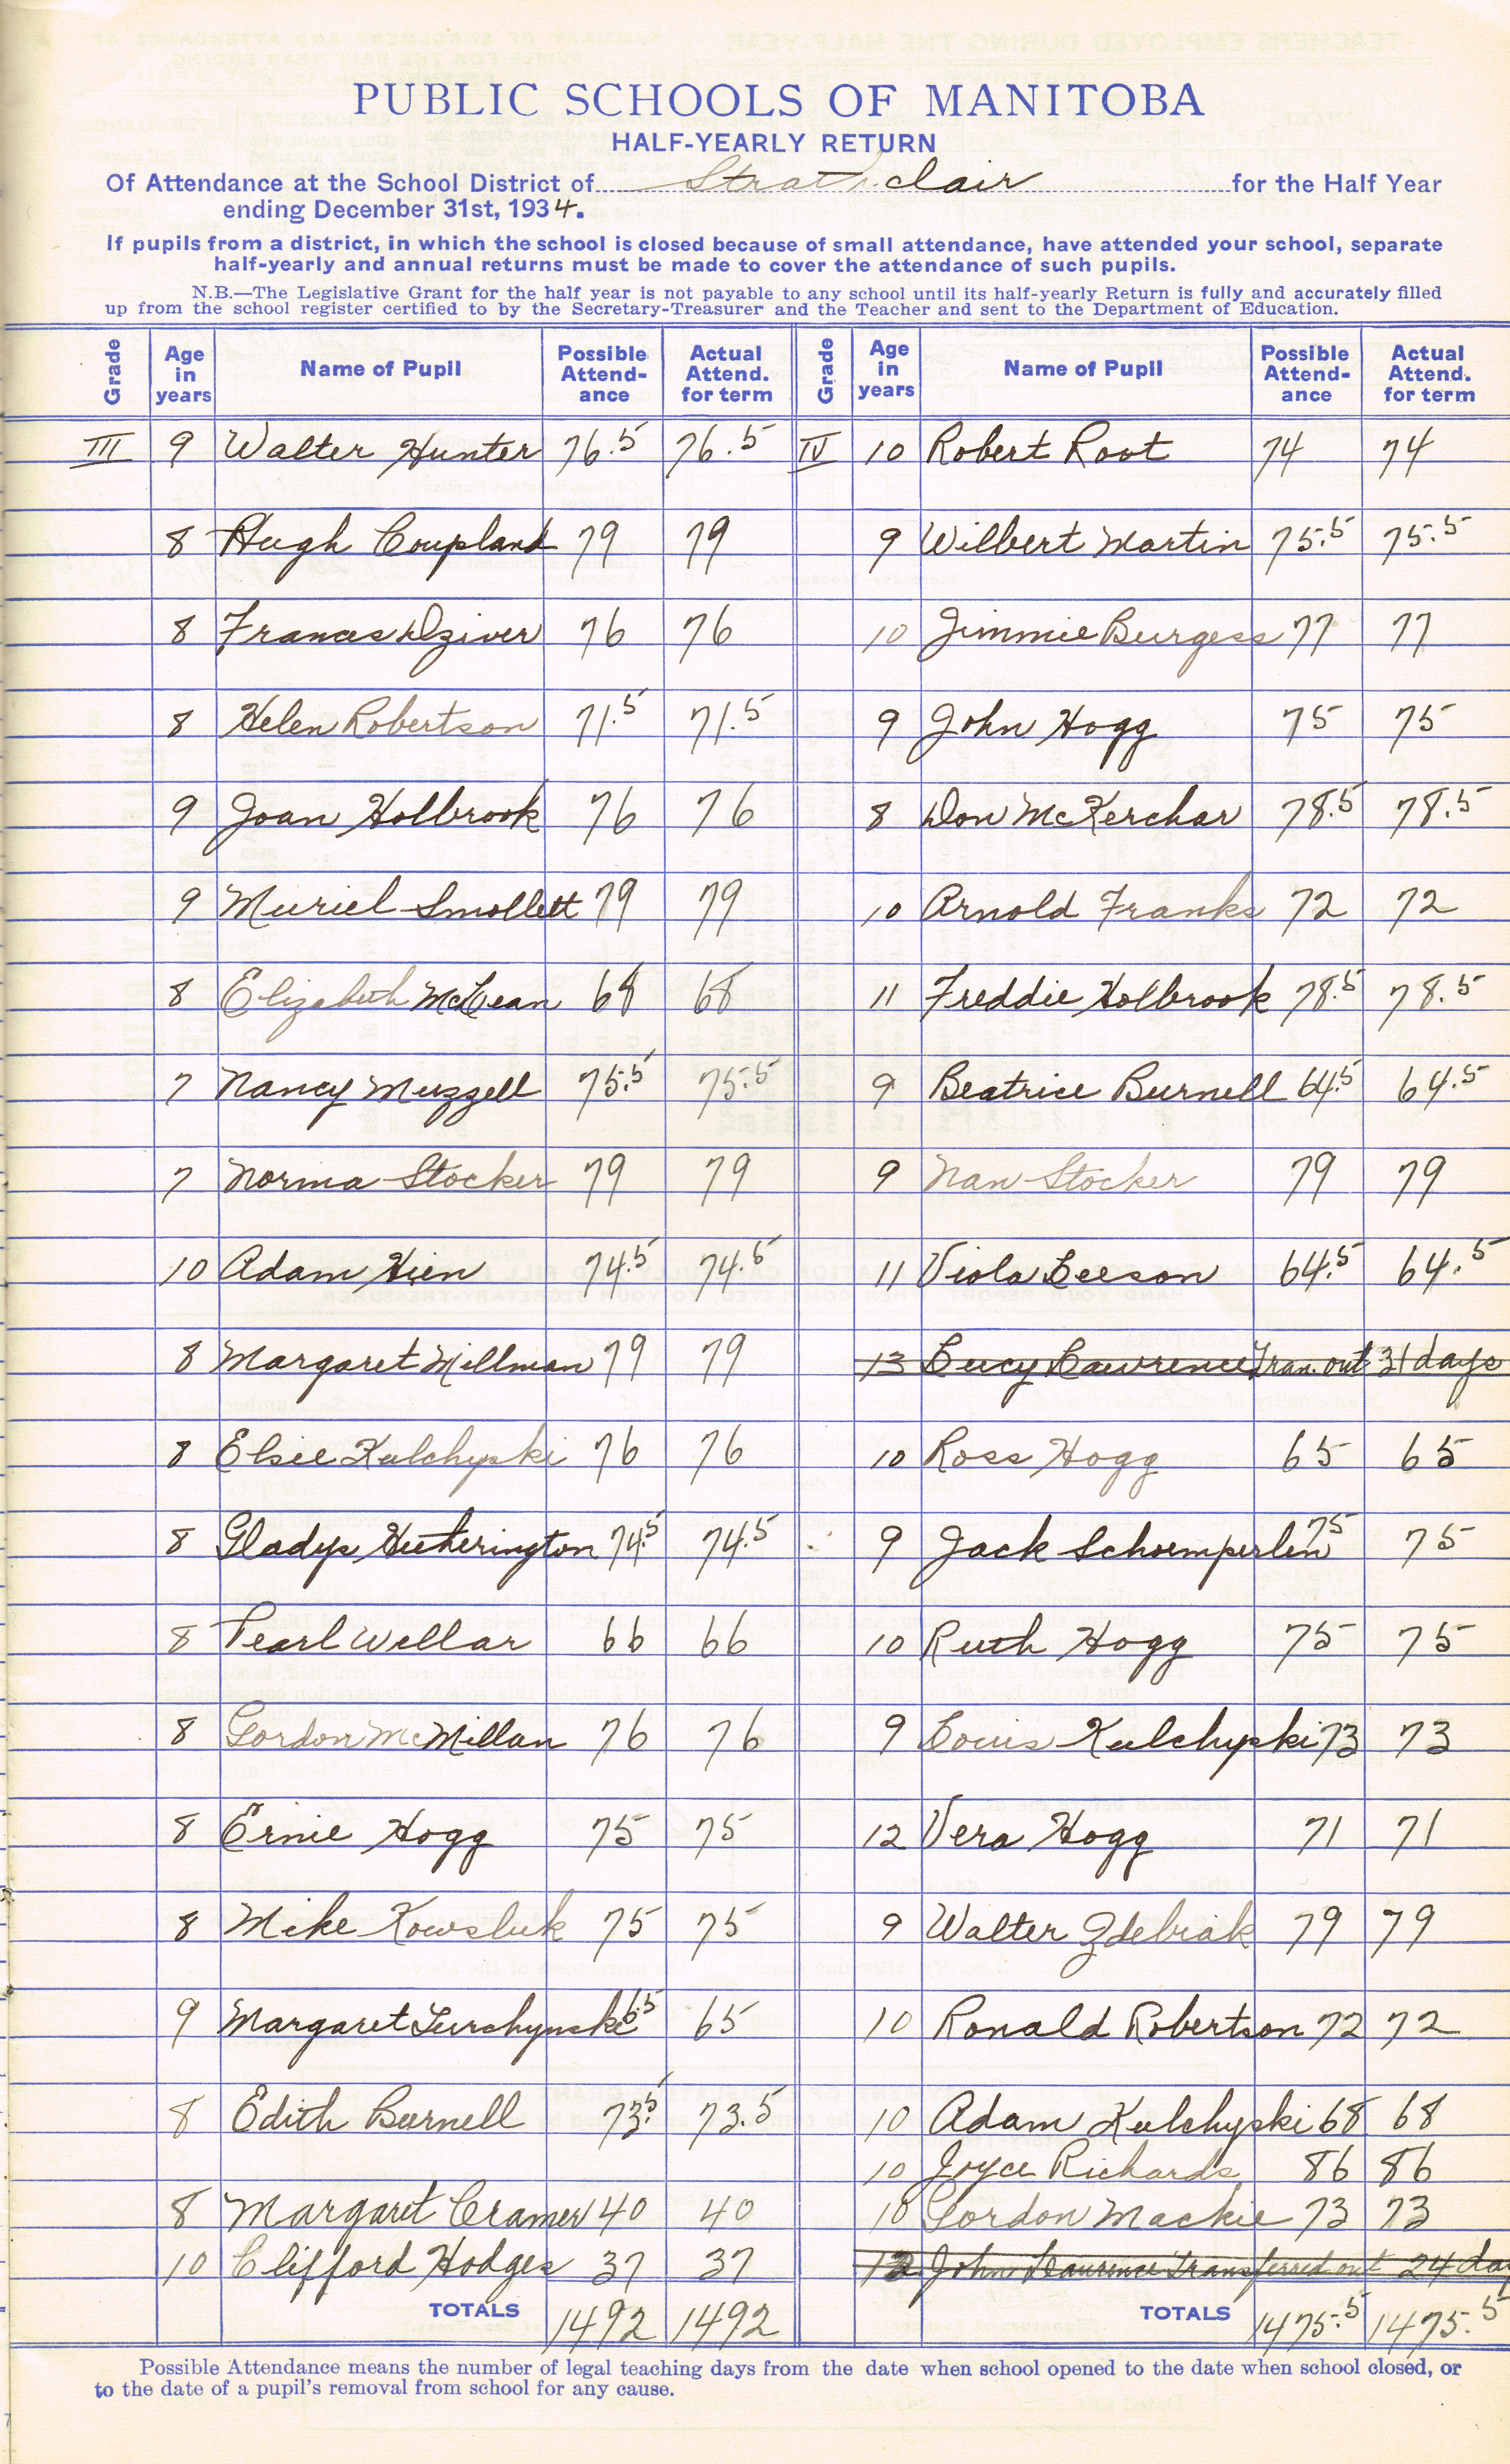 PUBLIC SCHOOLS OF MANITOBA
HALF-YEARLY RETURN
Of Attendance at the School District of Strathclair for the Half Year
ending December 31st, 1934.
If pupils from a district, in which the school is closed because of small attendance, have attended your school, separate
half-yearly and annual returns must be made to cover the attendance of such pupils.
N.B.—The Legislative Grant for the half year is not payable to any school until its half-yearly Return is fully and accurately filled
up from the school register certified to by the Secretary-Treasurer and the Teacher and sent to the Department of Education.
Grade Age in years Name of Pupil Possible Attend-ance Actual Attend. for term Grade Age in years Name of Pupil Possible Attend-ance Actual Attend. for term
III 9 Walter Hunter 76.5 76.5 IV 10 Robert Root 74 74
8 Hugh Coupland 79 79 9 Wilbert Martin 75.5 75.5
8 Frances Dziver 76 76 10 Jimmie Burgess 77 77
8 Helen Robertson 71.5 71.5 9 John Hogg 75 75
9 Joan Holbrook 76 76 8 Don McKerchar 78.5 78.5
9 Muriel Smollett 79 79 10 Arnold Franks 72 72
8 Elizabeth McLean 68 68 11 Freddie Holbrook 78.5 78.5
7 Nancy Muzzell 75.5 75.5 9 Beatrice Burnell 64.5 64.5
7 Norma Stocker 79 79 9 Nan Stocker 79 79
10 Adam Hien 74.5 74.5 11 Viola Leeson 64.5 64.5
8 Margaret Millman 79 79 13 Lucy Lawrence Tran. out 31 days
8 Elsie Kulchyski 76 76 10 Ross Hogg 65 65
8 Gladys Hetherington 74.5 74.5 9 Jack Schoemperlen 75 75
8 Pearl Wellar 66 66 10 Ruth Hogg 75 75
8 Gordon McMillan 76 76 9 Louis Kulchyski 73 73
8 Ernie Hogg 75 75 12 Vera Hogg 71 71
8 Mike Kowsluk 75 75 9 Walter Zdebiak 79 79
9 Margaret Turchynski 65 65 10 Ronald Robertson 72 72
8 Edith Burnell 73.5 73.5 10 Adam Kulchyski 68 68
10 Joyce Richards 86 86
8 Margaret Cramer 40 40 10 Gordon Mackie 73 73
10 Clifford Hodges 37 37 12 John Lawrence Transferred out 24 day
TOTALS 1492 1492 TOTALS 1475.5 1475.5
Possible Attendance means the number of legal teaching days from the date when school opened to the date when school closed, or
to the date of a pupil's removal from school for any cause.